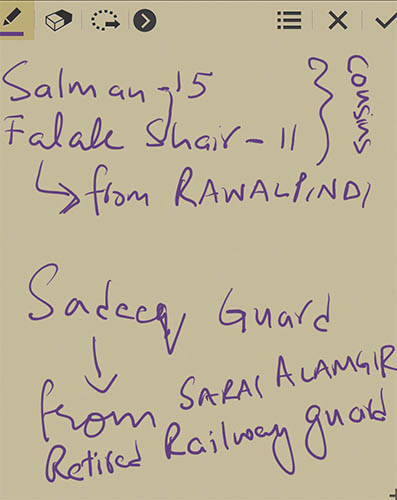 Salman - 15
Falak Shair - 11
cousins
from RAWALPINDI
Sadeeq Guard
from SARAI ALAMGIR
Retired Railway guard